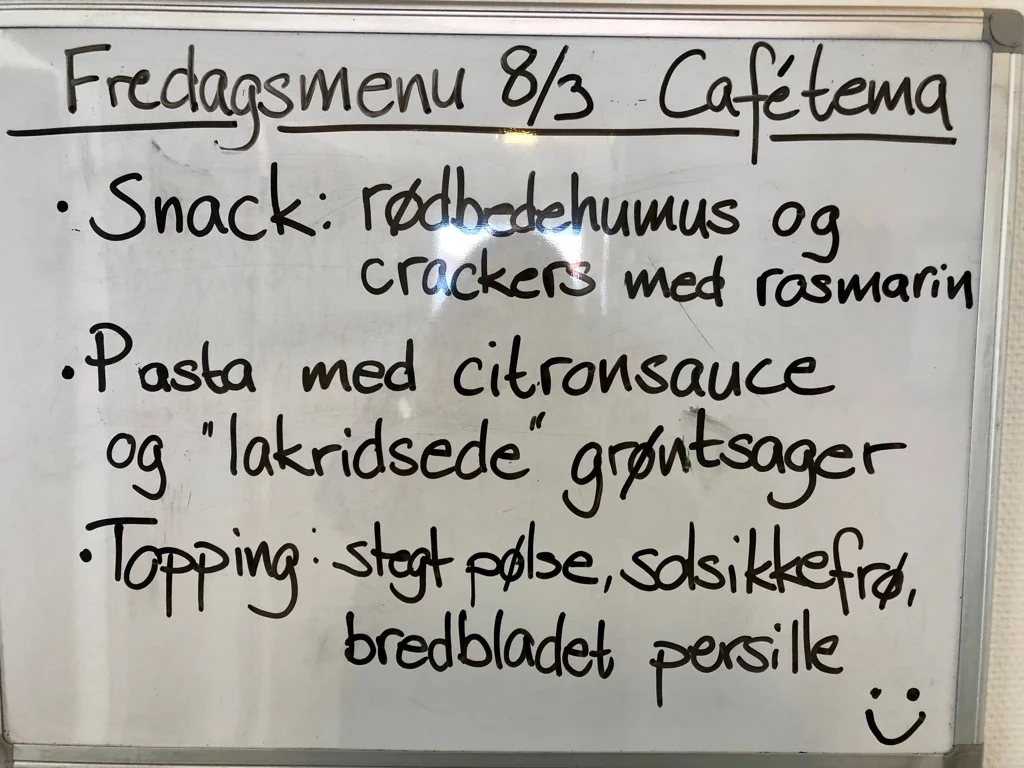 Fredagsmenu 8/3 Cafétema
• Snack: rødbedehumus og
crackers med rosmarin
• Pasta med citronsauce
og "lakridsede" grøntsager
• Topping: stegt pølse, solsikkefrø,
bredbladet persille